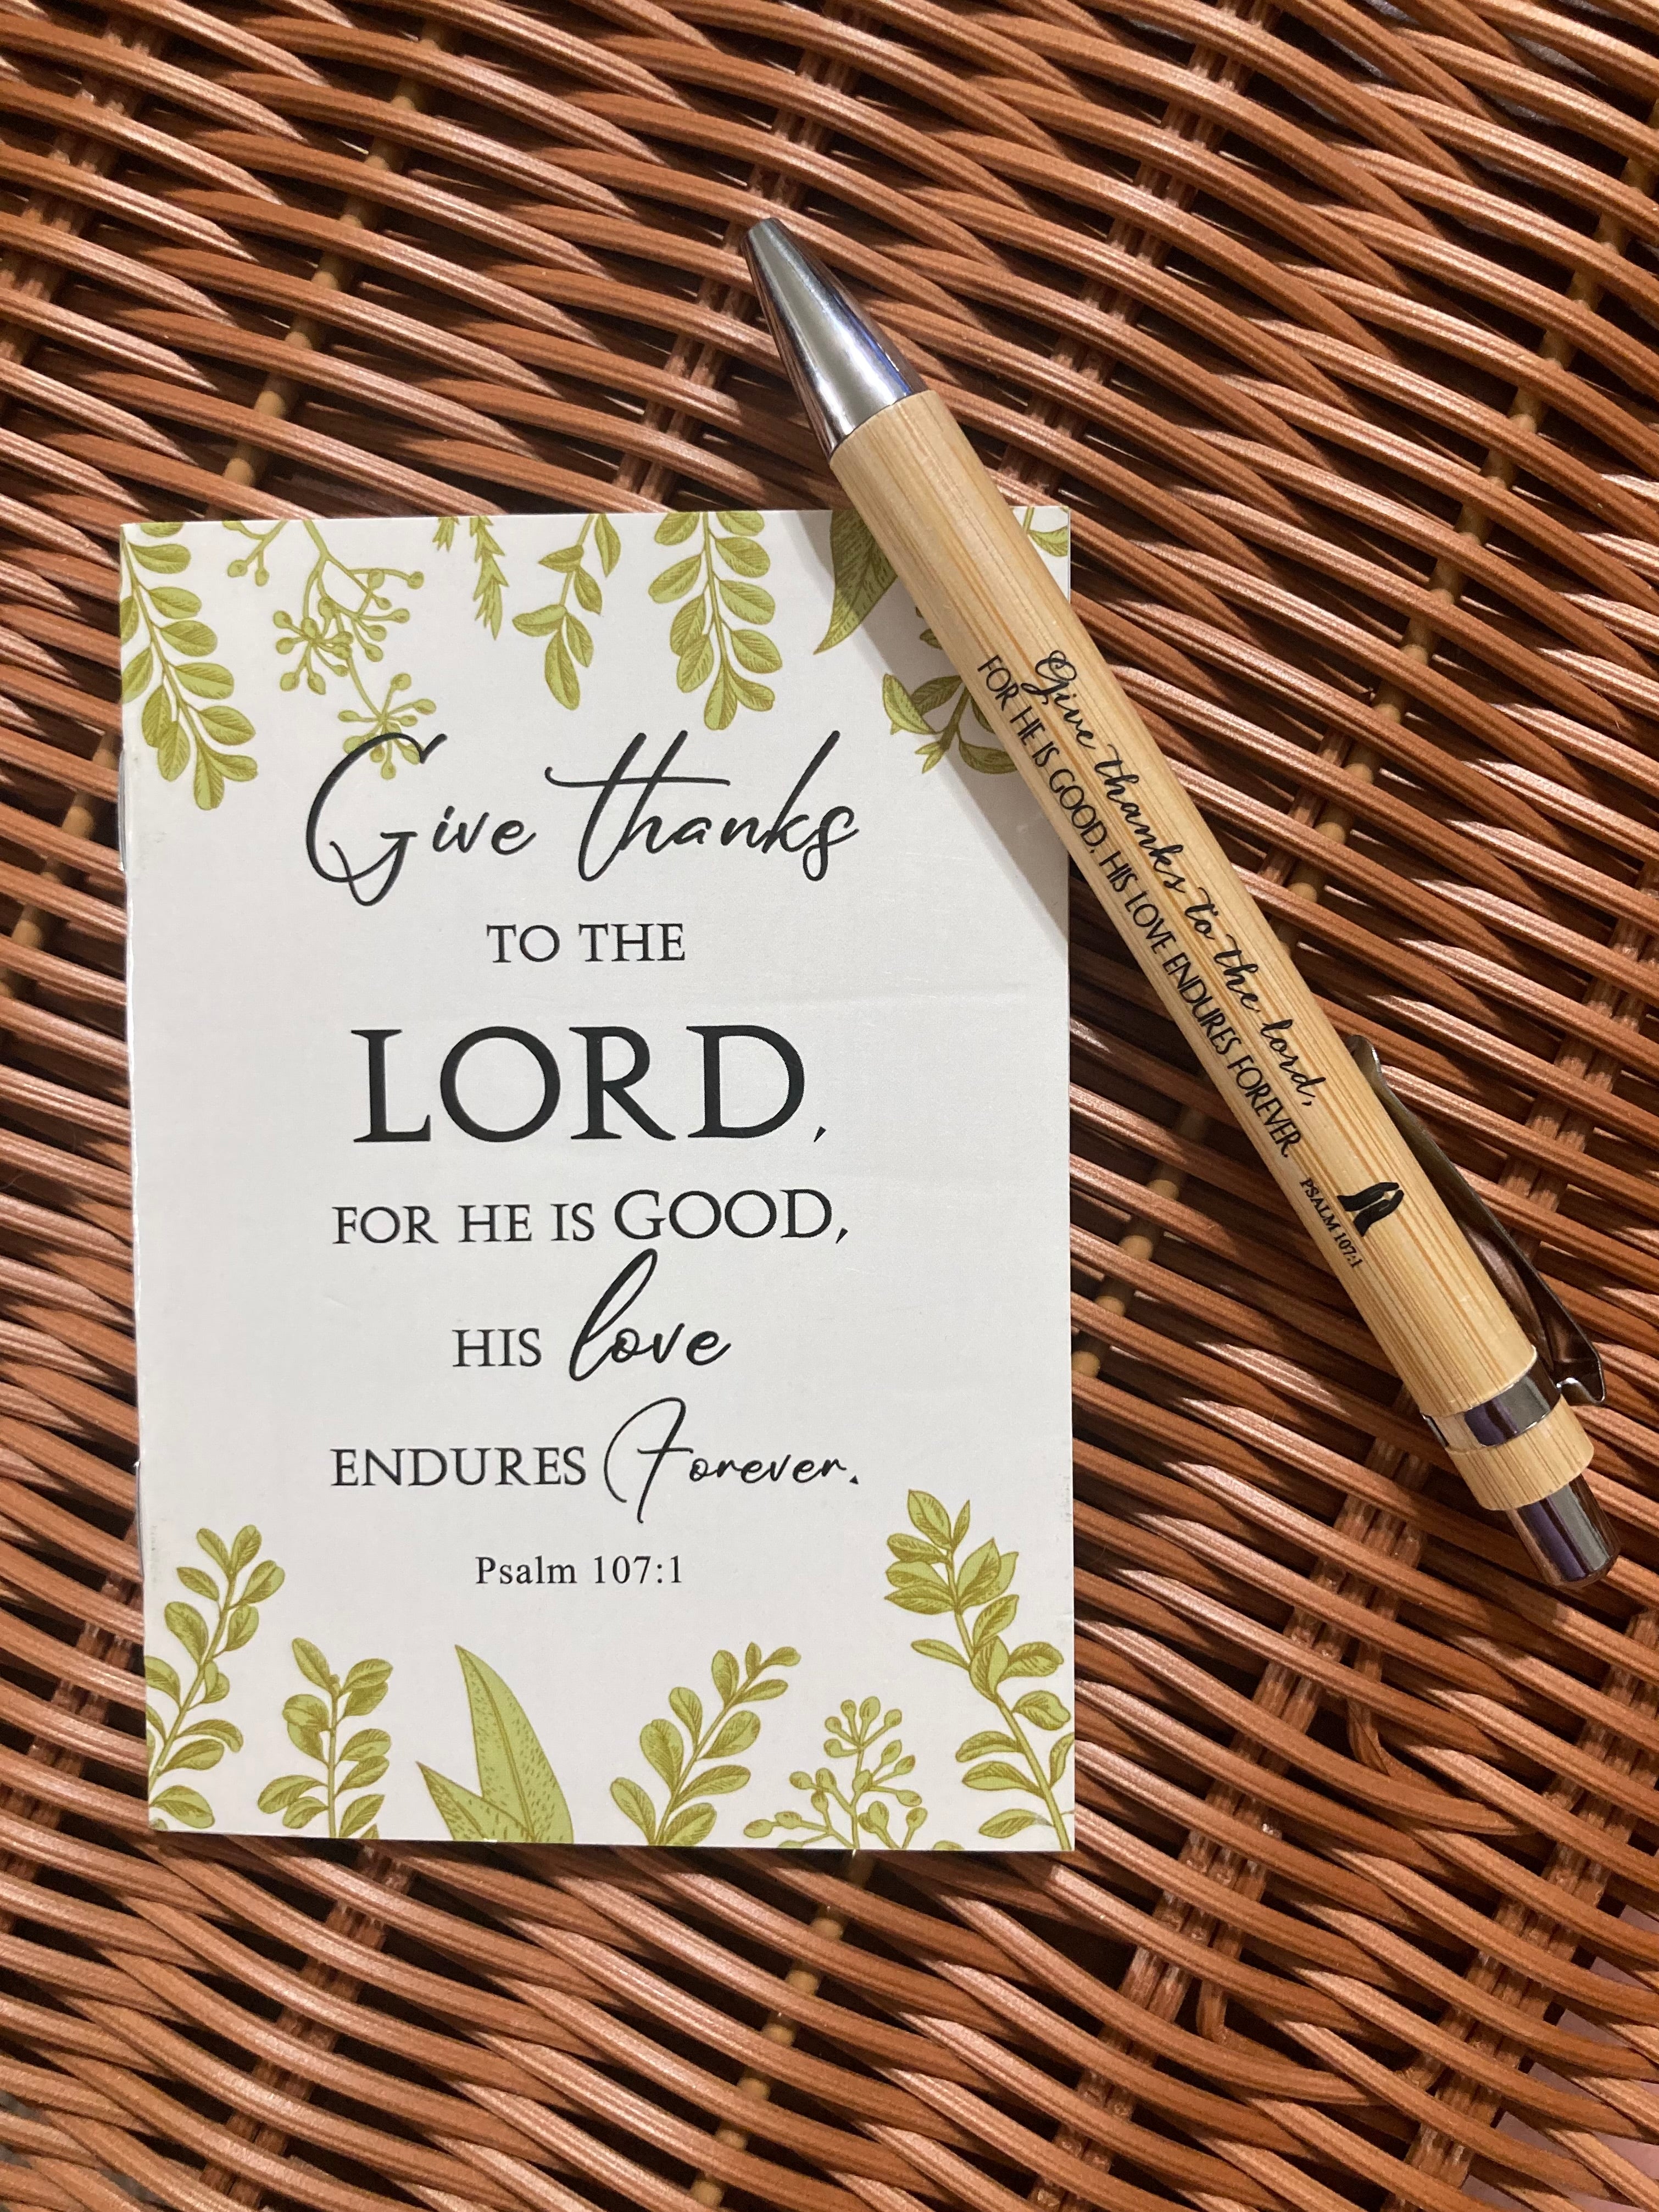 Give thanks
TO THE
LORD,
FOR HE IS GOOD,
HIS love
ENDURES Forever.
Psalm 107:1
Give thanks to the lord,
FOR HE IS GOOD. HIS LOVE ENDURES FOREVER.
PSALM 107:1